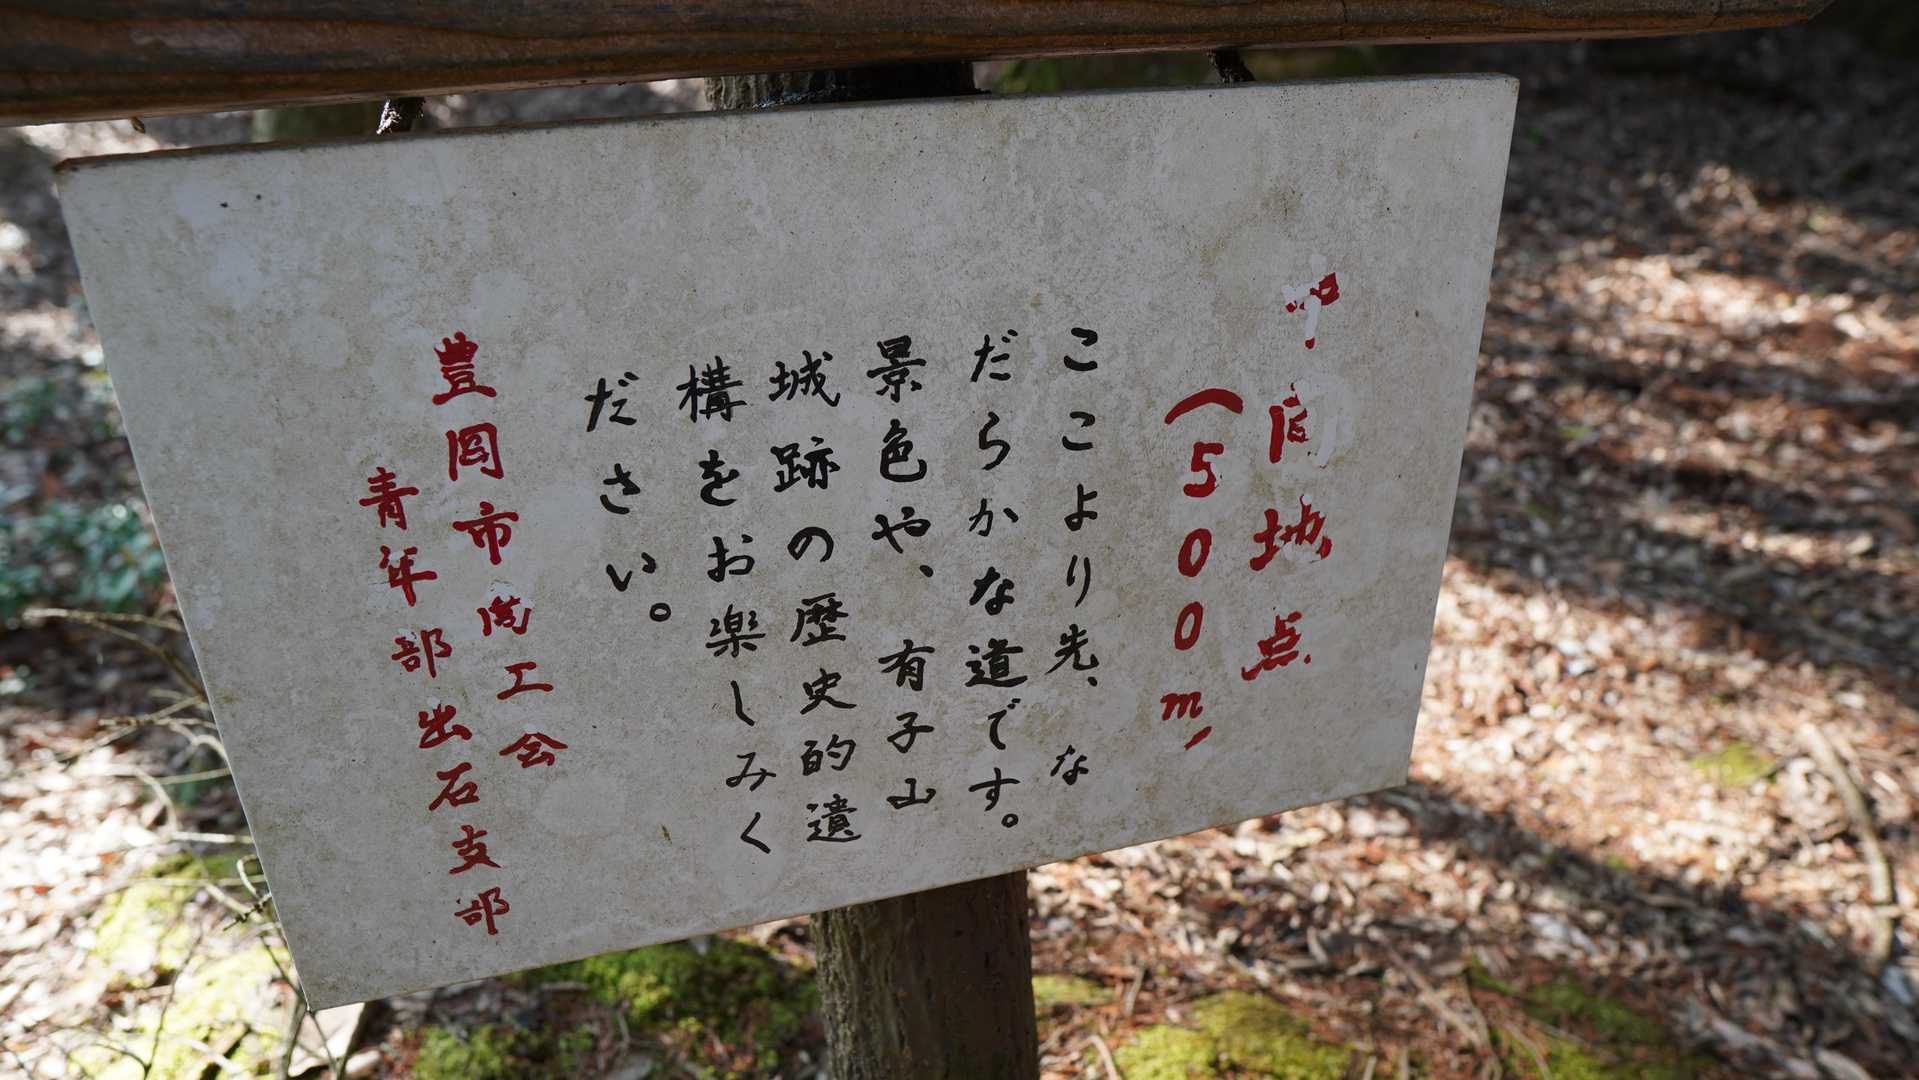 中間地点
(500m)
ここより先、な
だらかな道です。
景色や、有子山
城跡の歴史的遺
構をお楽しみく
ださい。
豊岡市商工会
青年部出石支部